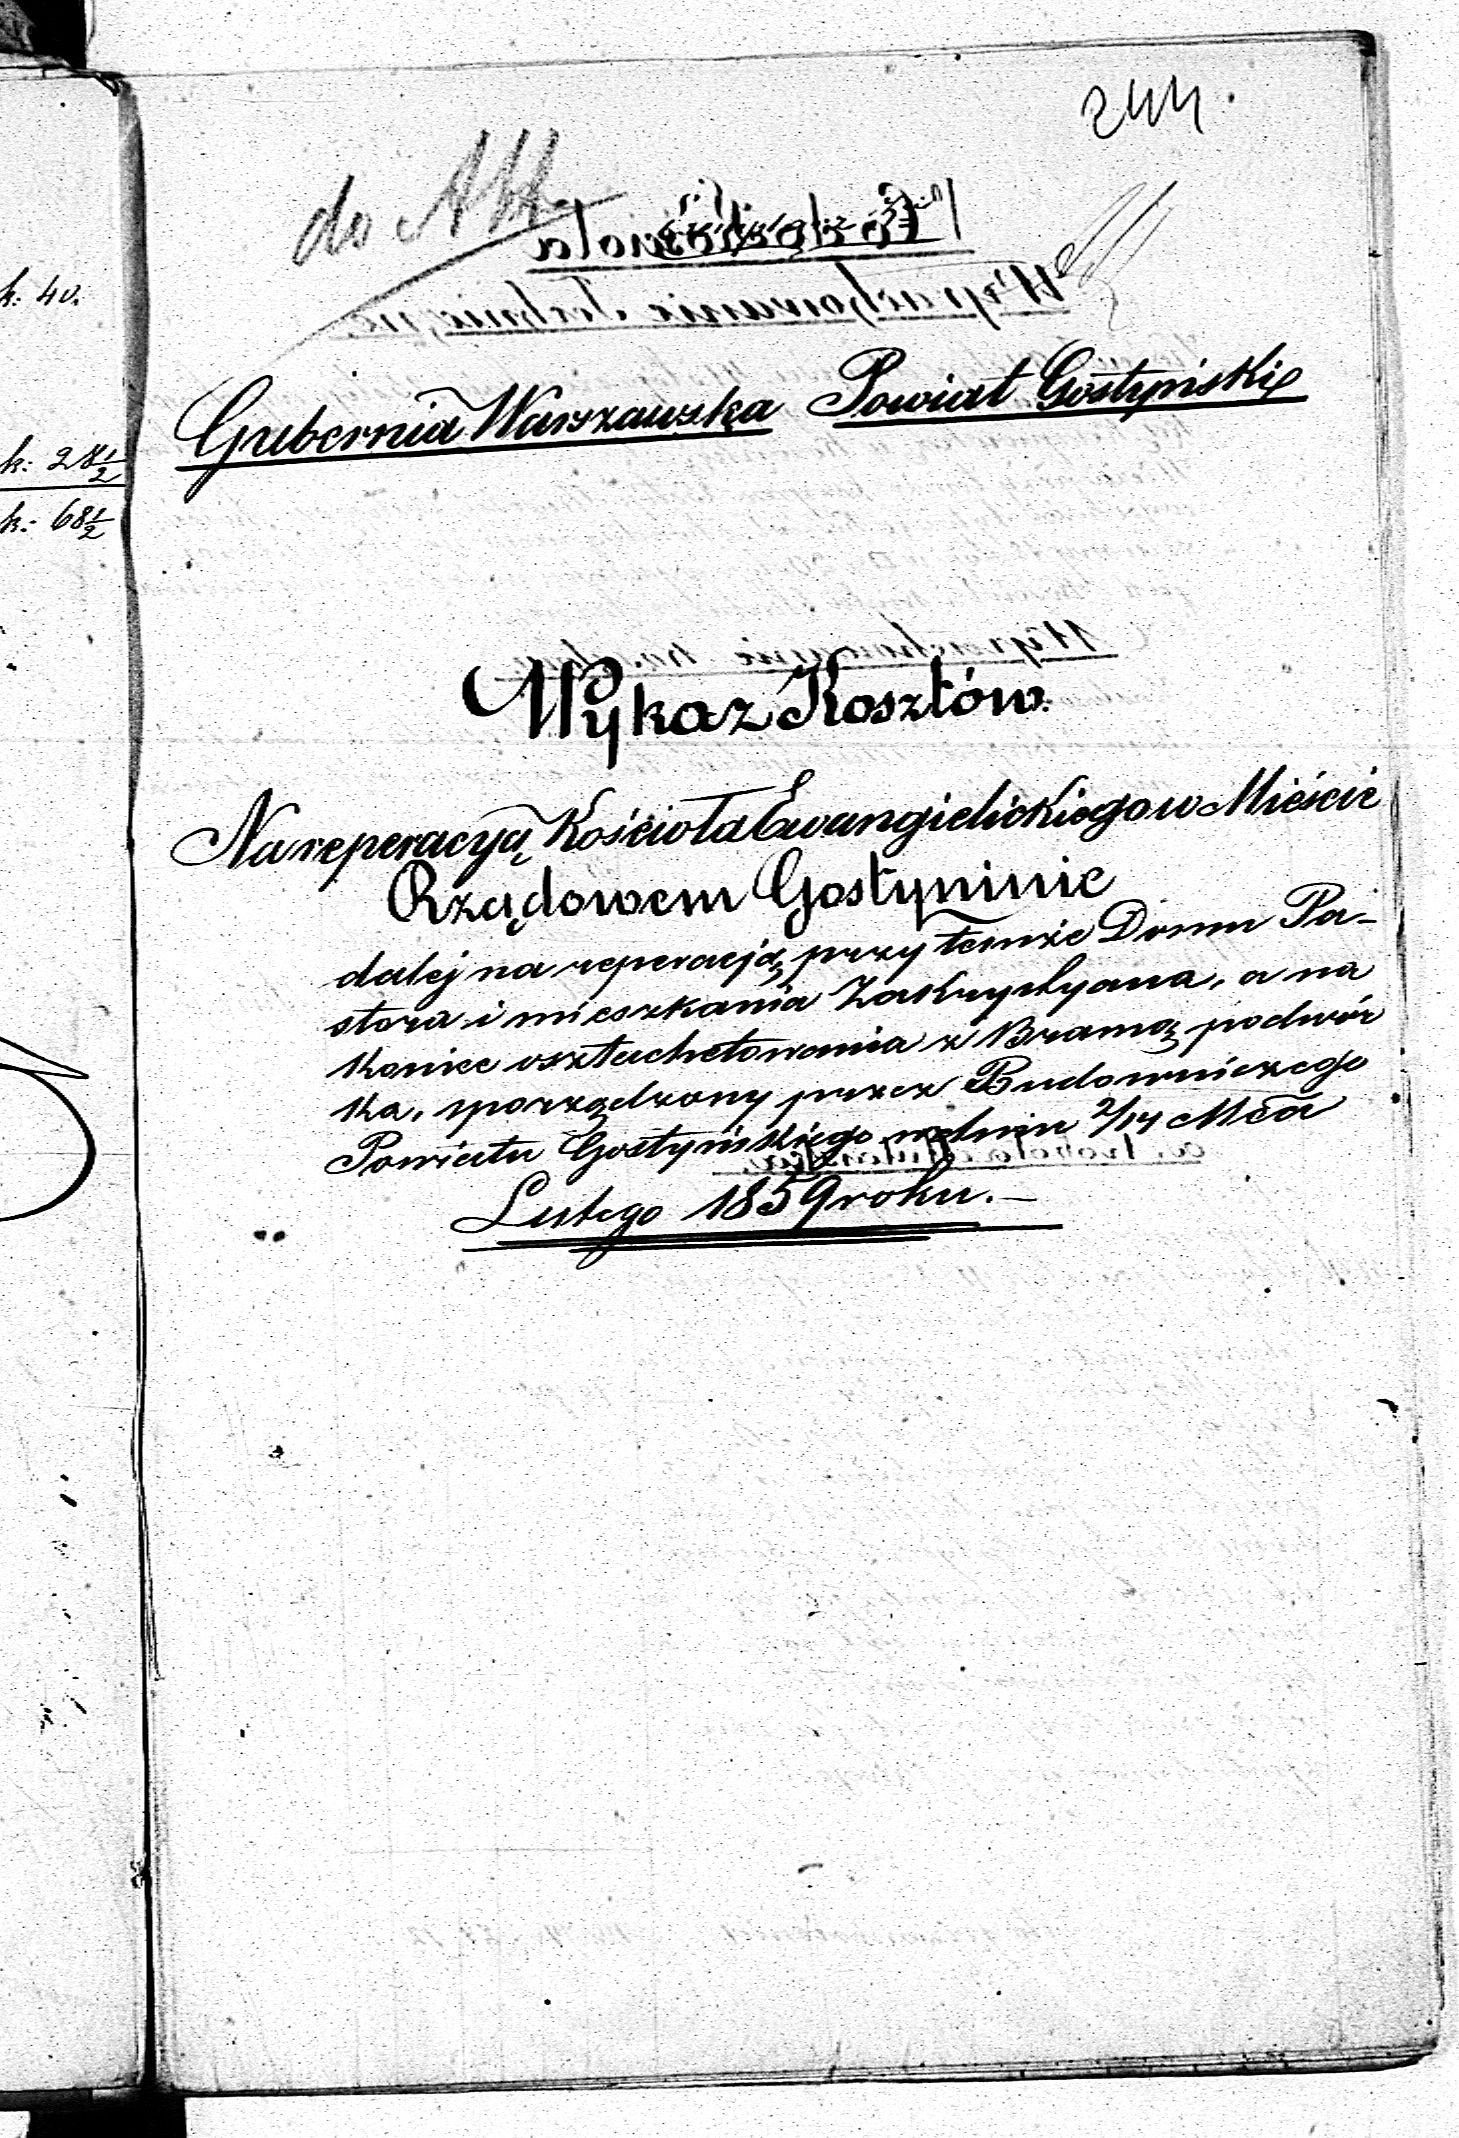 244.
do Akt
k: 40.
Gubernia Warszawska Powiat Gostyński
k: 28½
k: 68½
Wykaz Kosztów.
Na reperacyą Kościoła Ewangielickiego w Mieście
Rządowem Gostyninie
dalej na reperacją przy temże Domu Pa-
stora i mieszkania Zakrystyana, a na
koniec osztachetowania z Bramą podwór
ka, sporządzony przez Budowniczego
Powiatu Gostyńskiego w dniu 2/14 Mca
Lutego 1859 roku.—